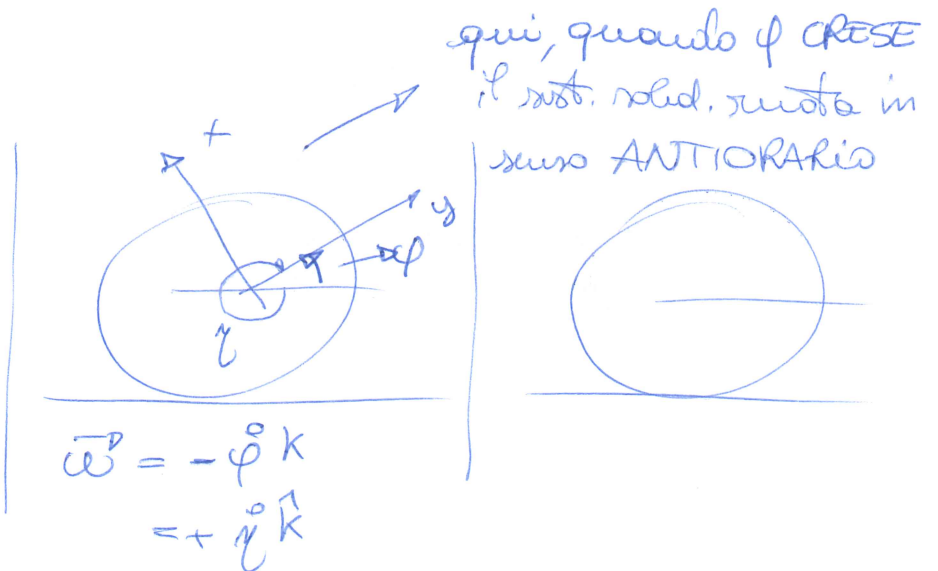 qui, quando φ CRESE
il sist. solid. ruota in
senso ANTIORARIO
y
φ
η
ω⃗ = - φ̊ k
= + η̊ k̂